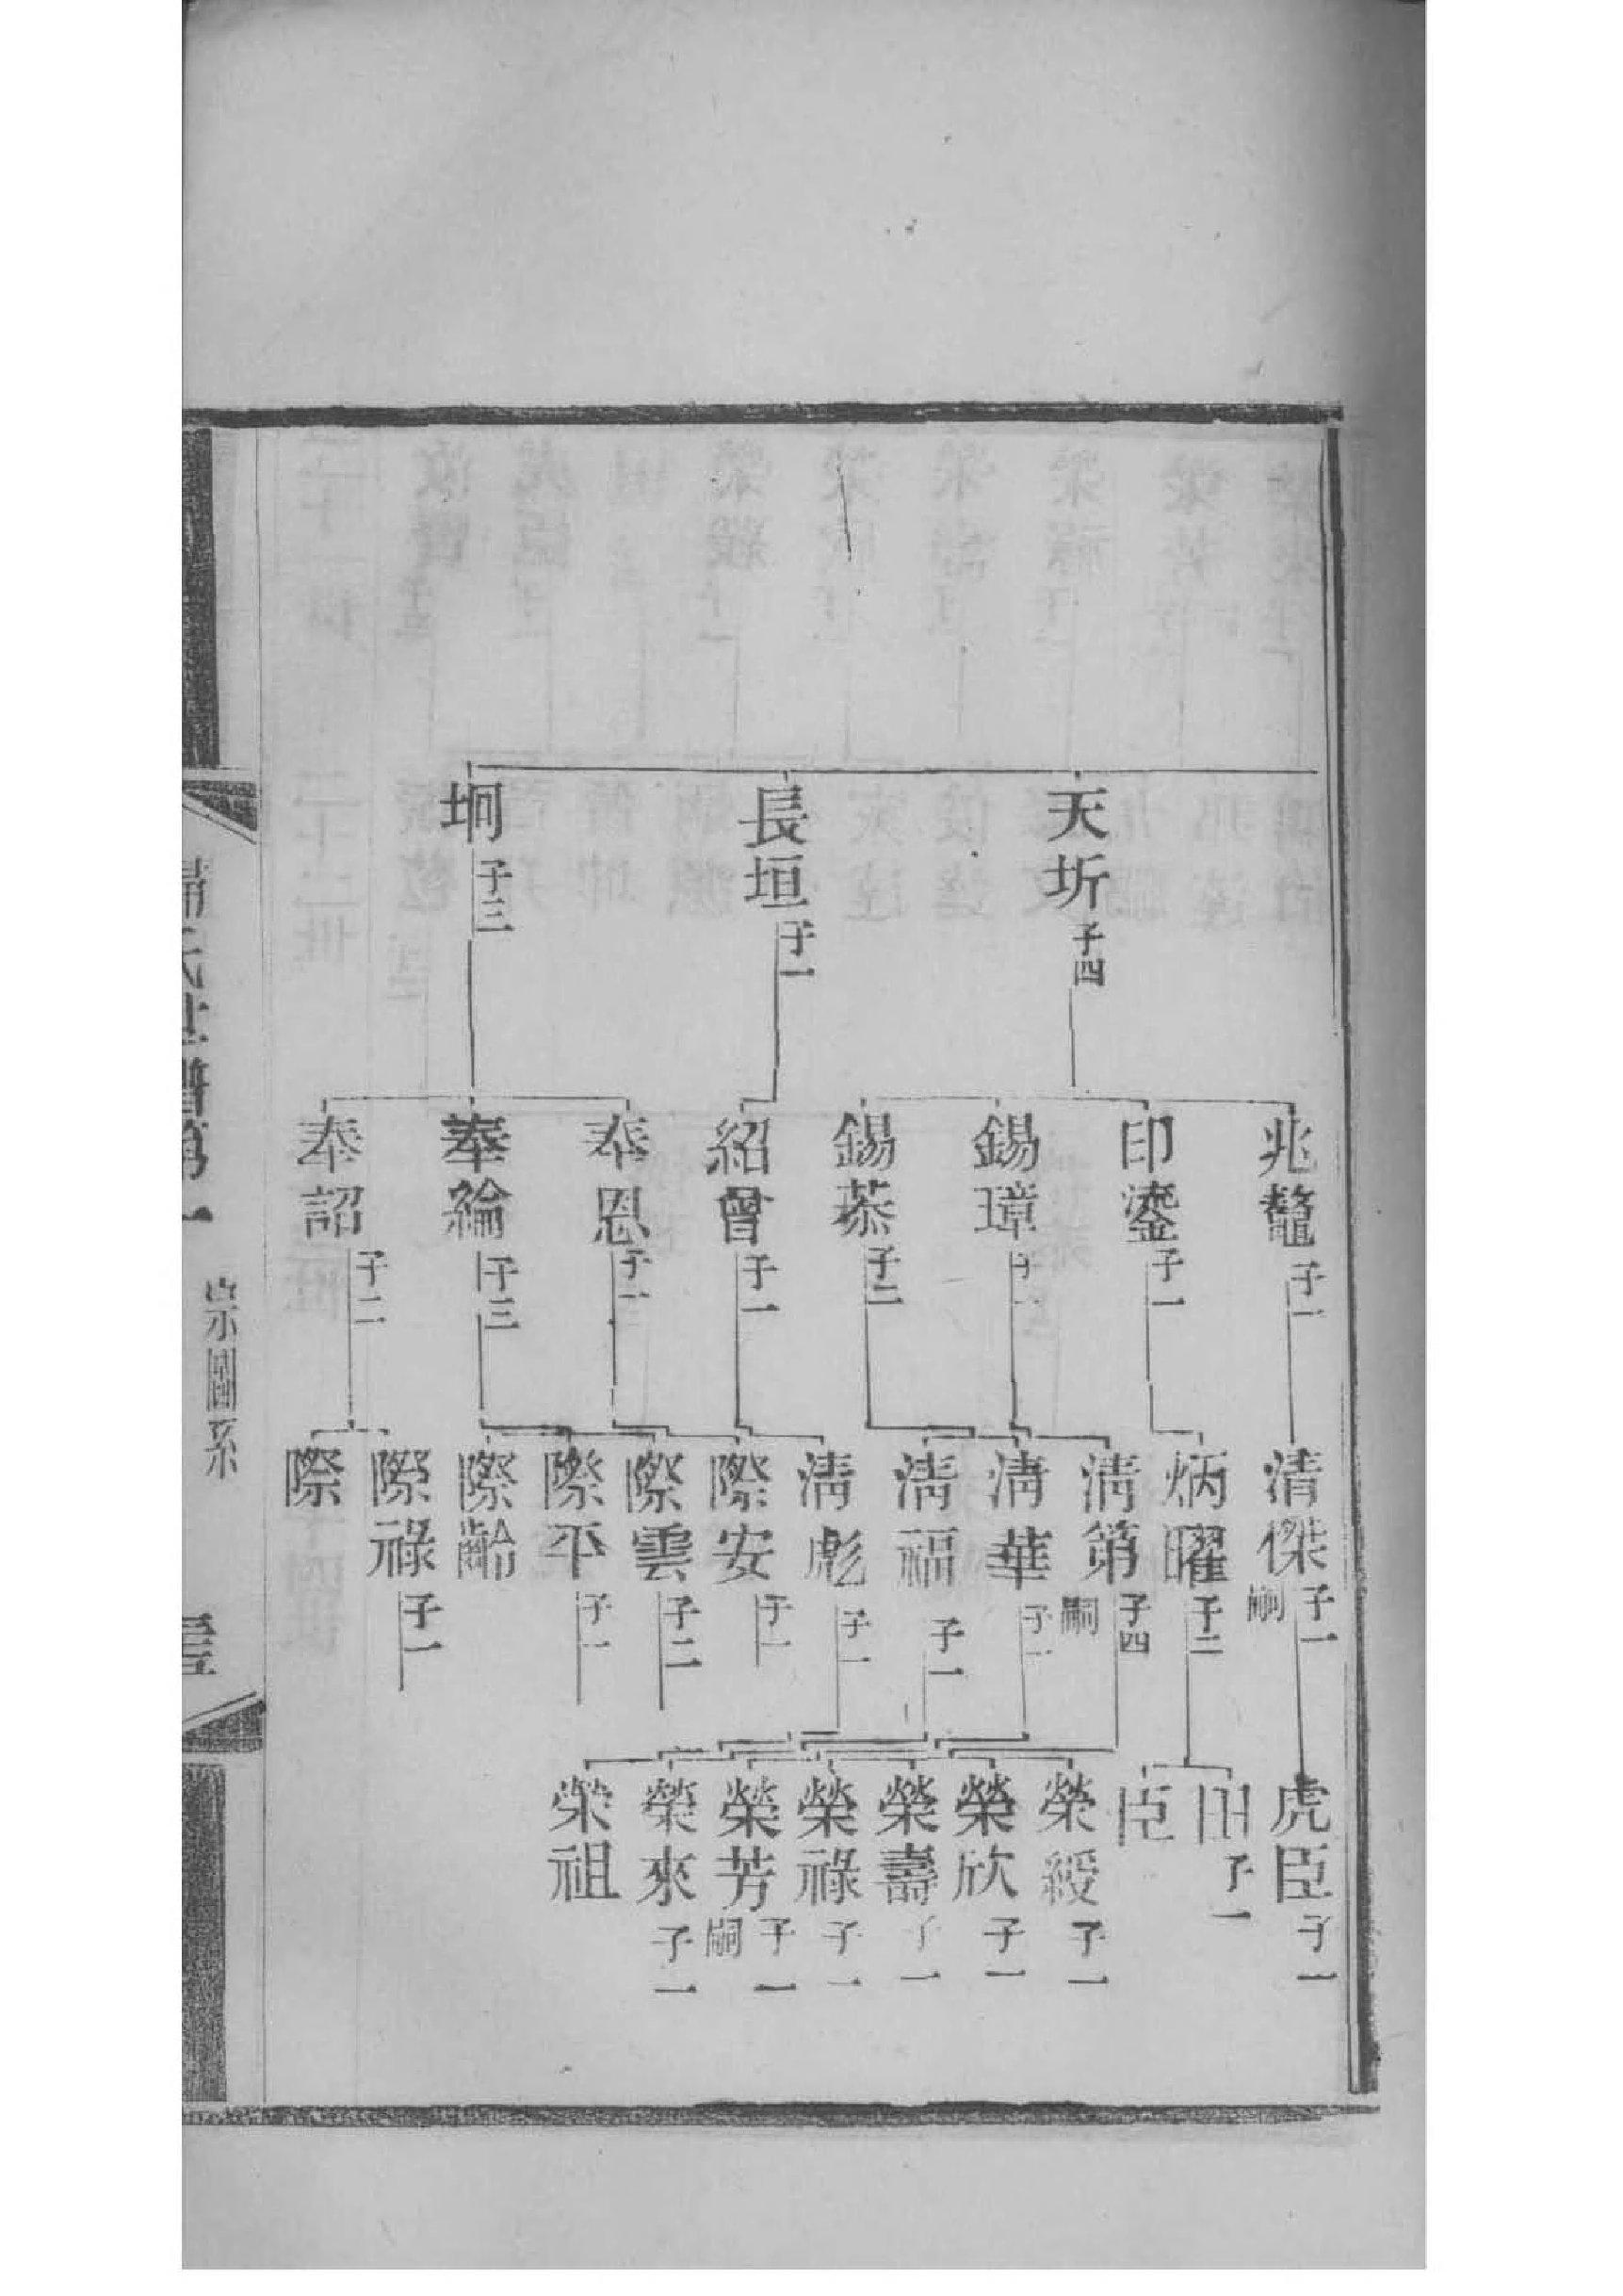 天圻 子四
長垣 子一
坰 子三
兆鼇 子一
印鎏 子一
錫璋 子一
錫菾 子二
紹曾 子一
奉恩 子一
奉綸 子三
奉詔 子二
清傑 子一 嗣
炳曜 子二
淸第 子四 嗣
淸華 子一
淸福 子一
淸彪 子一
際安 子一
際雲 子二
際平 子一
際齡
際祿 子一
際
虎臣 子一
子一
臣
榮綬 子一
榮欣 子一
榮壽 子一
榮祿 子一
榮芳 子一 嗣
榮來 子一
榮祖
氏世譜第一
宗圖系